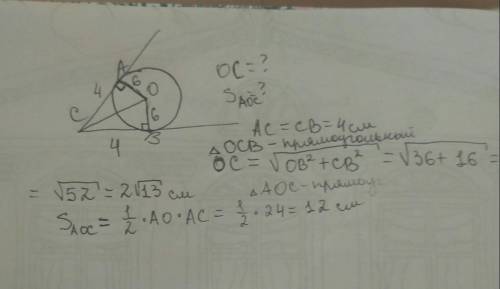 A
4
6
O
C
6
4
B
OC = ?
S AOC = ?
AC = CB = 4 см
△OCB - прямоугольный
OC = √OB² + CB² = √36 + 16 =
= √52 = 2√13 см
△AOC - прямоуг.
S AOC = 1/2 · AO · AC = 1/2 · 24 = 12 см